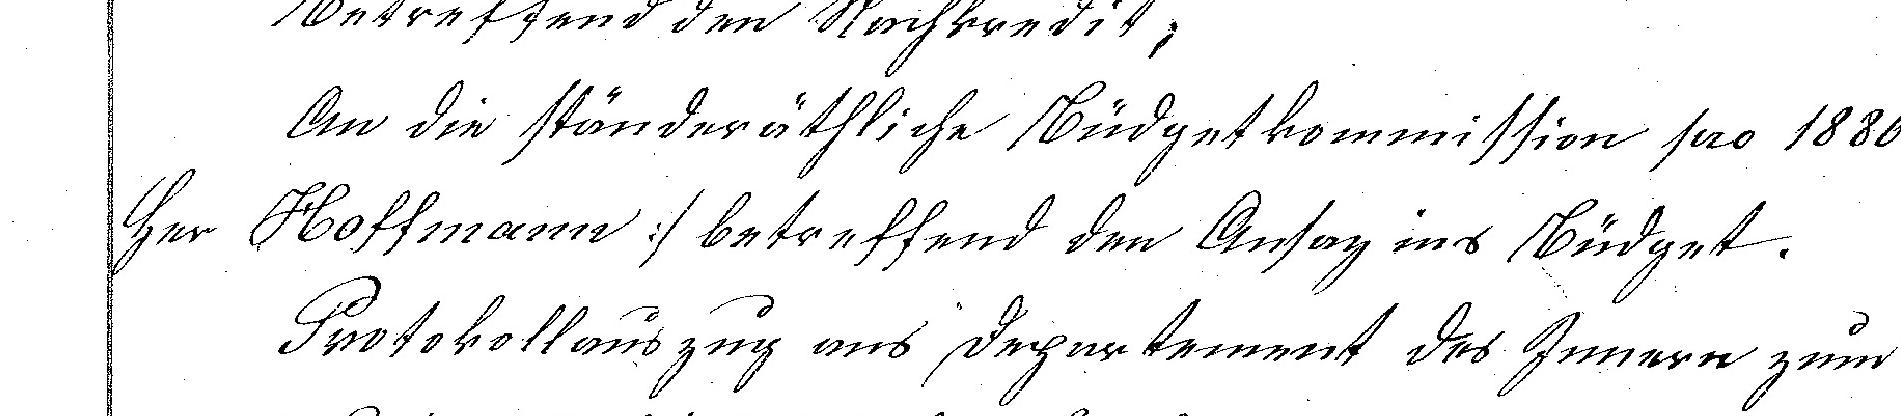 Betreffend den Nachkredit;
An die ständeräthliche Büdgetkommission pro 1880
Her Hoffmann :/ betreffend den Ansaz ins Büdget.
Protokollauszug ans Departement des Innern zum